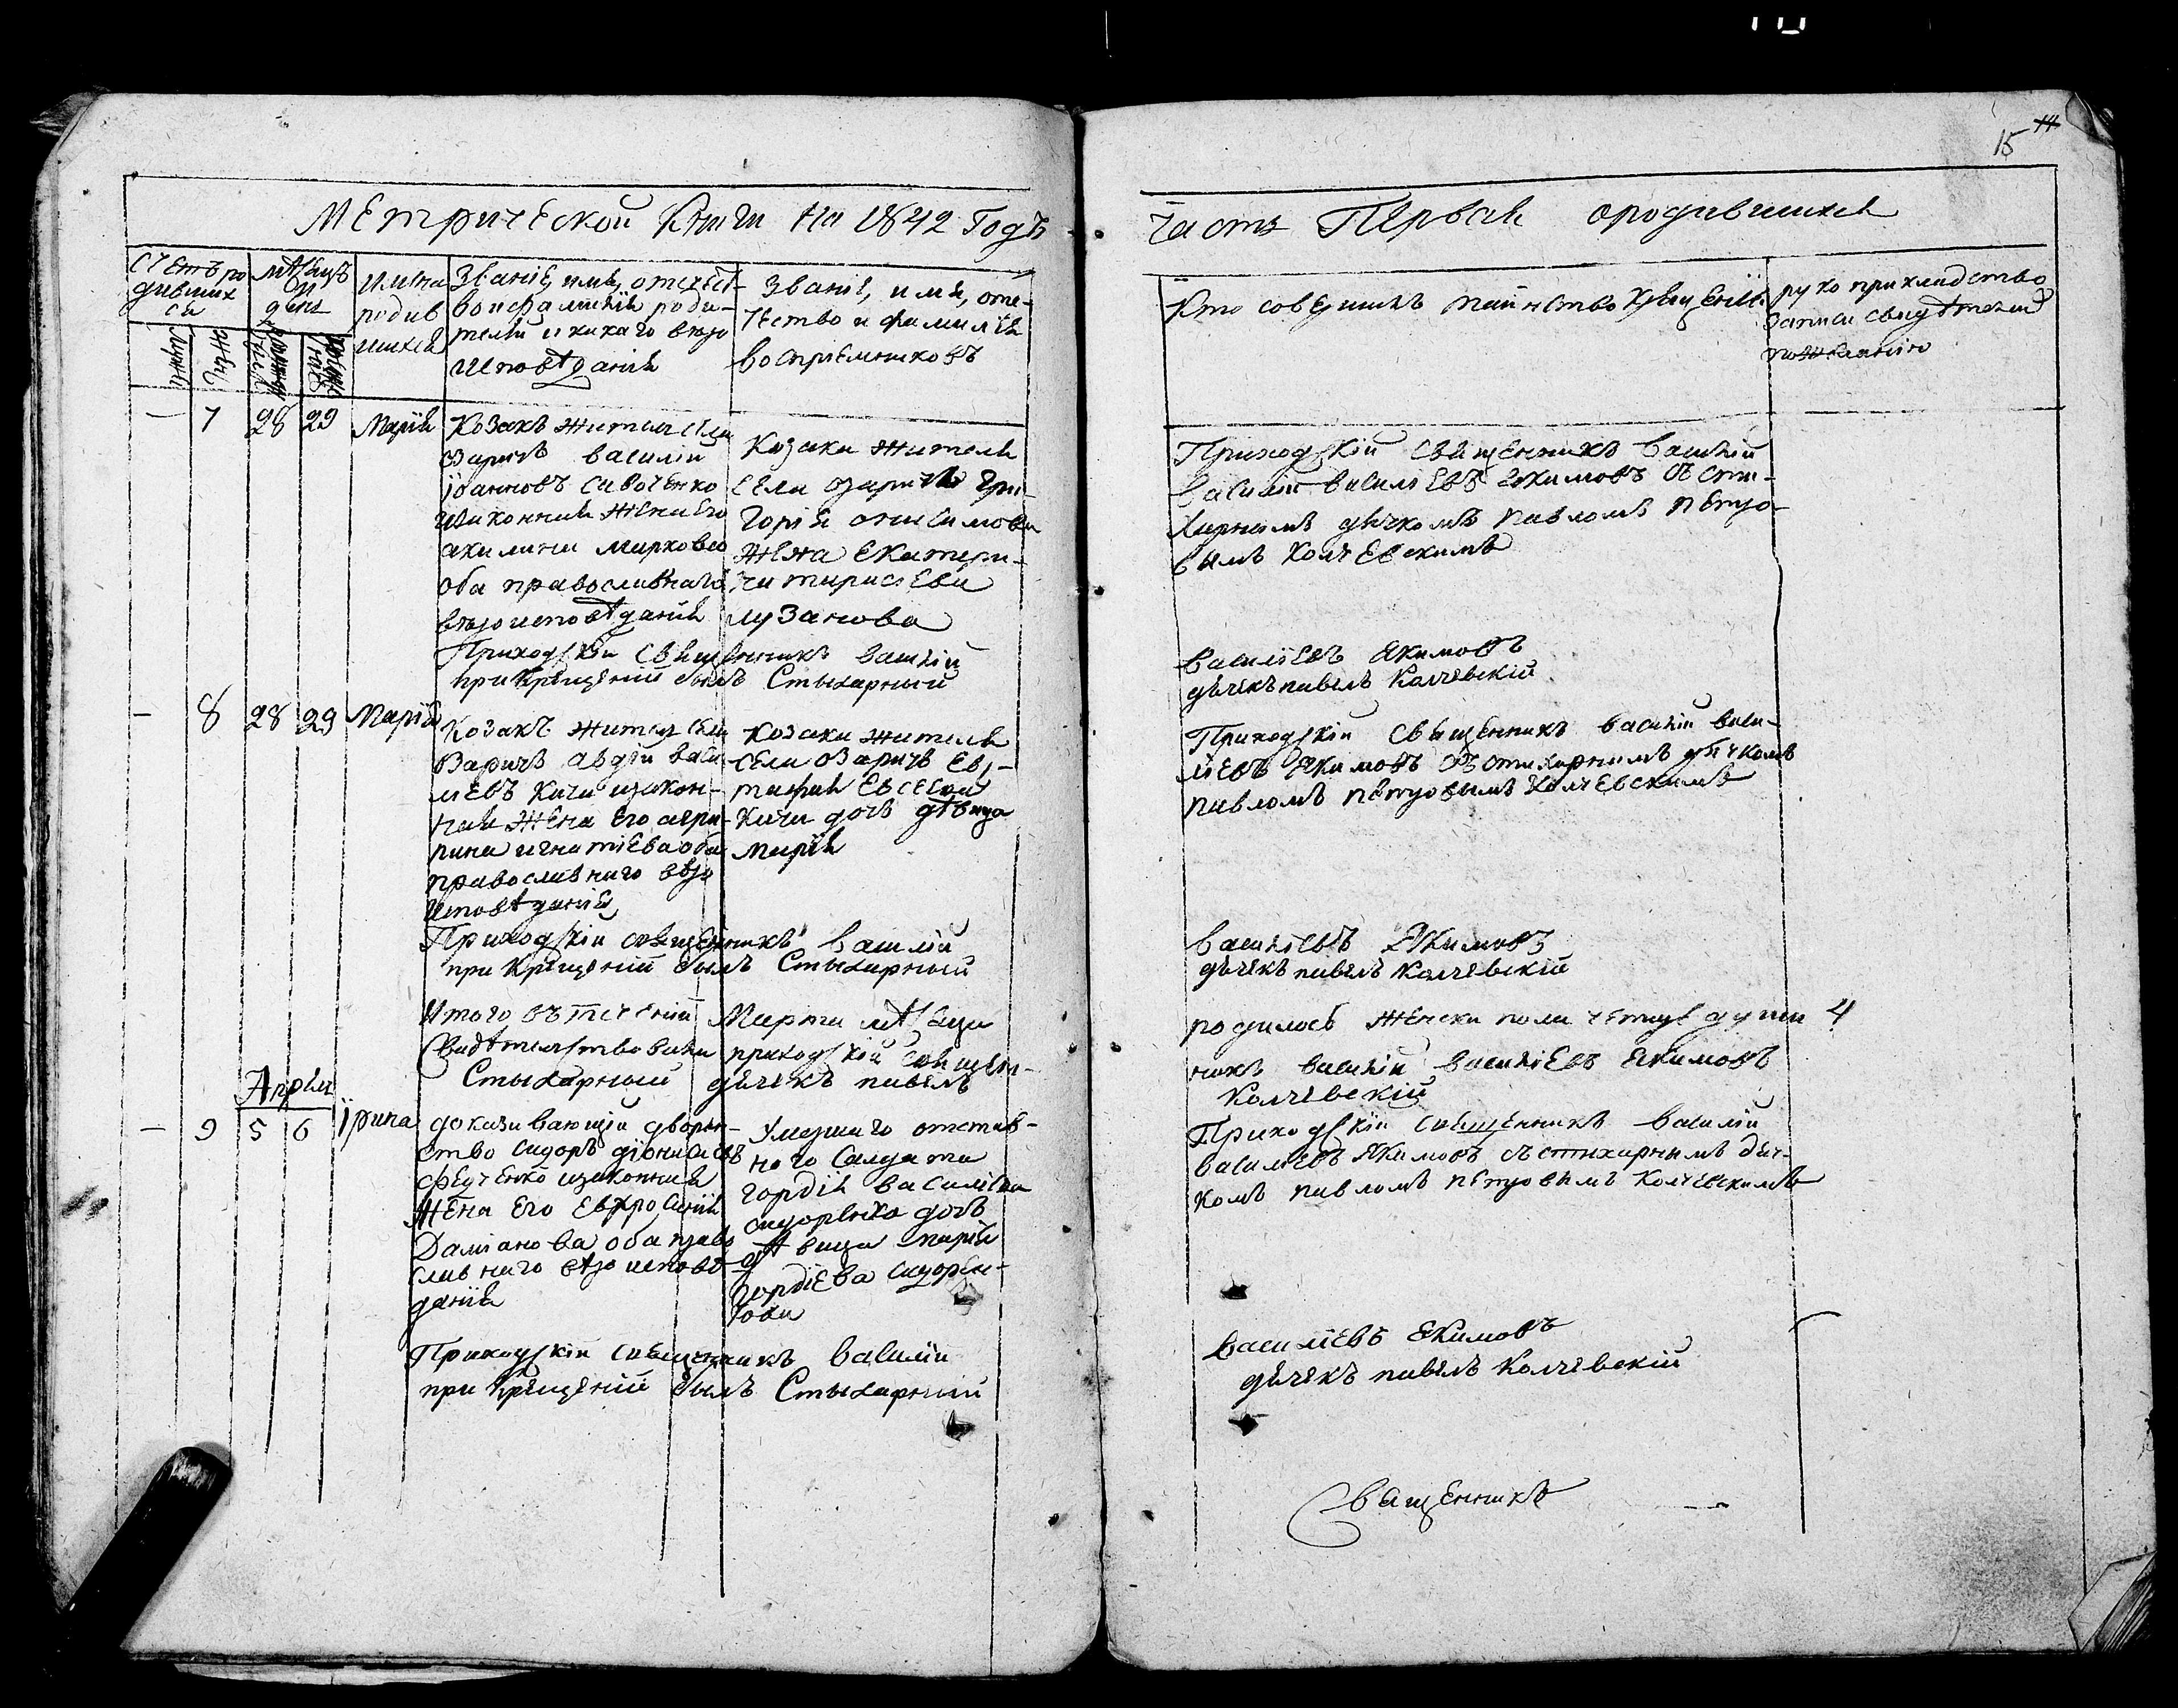 15 14
Метрической Книги на 1842 Годъ
часть Первая ородившихся
Счетъ ро
дивших
ся
мѣсяцъ
и
день
имена
родив
шихся
Званіе, имя, отчест-
во и фамилія роди-
телей и какаго вѣро
исповѣданія
Званіе, имя, оте-
чество и фамилія
воспріемниковъ
Кто совершилъ таинство крещенія
рукоприкладство
записи свидѣтелей
по желанію
— 7 28 29 Марія
Козакъ житель села
Озаричъ василій
іоанновъ савоченко
законная жена Его
акилина маркова
оба православнаго
вѣроисповѣданія
Козака жителя
села озаричъ гри-
горія онисимова
жена Екатери-
на тарасіева
лузанова
Приходскій священникъ василій
василіевъ екимовъ съ сти-
харнымъ дячкомъ павломъ петро-
вымъ колчевскимъ
Приходскій Священникъ василій
при Крещеніи былъ Стыхарный
василіевъ Якимовъ
дьячекъ павелъ Колчевскій
— 8 28 29 Марія
Козакъ житель села
Озаричъ авдій васи
ліевъ кича изакон-
ная жена Его агри-
пина игнатіева оба
православнаго вѣро
исповѣданія
Козака жителя
села Озаричъ Ев-
тафія Евсеева
кичи дочь дѣвица
марія
Приходскій священникъ василій васи-
ліевъ Якимовъ съ стихарнымъ дячкомъ
павломъ петровымъ колчевскимъ
Приходскій священникъ василій
при Крещеніи былъ Стыхарный
василіевъ Якимовъ
дьячекъ павелъ Колчевскій
Итого въ теченіи Марта мѣсяца
родилось женска пола четыре души 4
Свидѣтельствовали приходскій священ-
никъ василій василіевъ Якимовъ
Стыхарный дьячекъ павелъ
Колчевскій
Апрѣля
— 9 5 6 ірина
доказивающій дворян-
ство сидоръ діонисіевъ
феученко изаконная
жена Его Евфросинія
Даміанова оба право
славнаго вѣро исповѣ-
данія
Умершаго отстав-
ного Салдата
гордія василіева
сидоренка дочь
дѣвица марія
гордіева сидорен-
кова
Приходскій священникъ василій
василіевъ Якимовъ съ стихарнымъ дяч-
комъ павломъ петровымъ колчевскимъ
Приходскій священникъ василій
при крещеніи былъ Стыхарный
василіевъ Якимовъ
дьячекъ павелъ Колчевскій
Священникъ